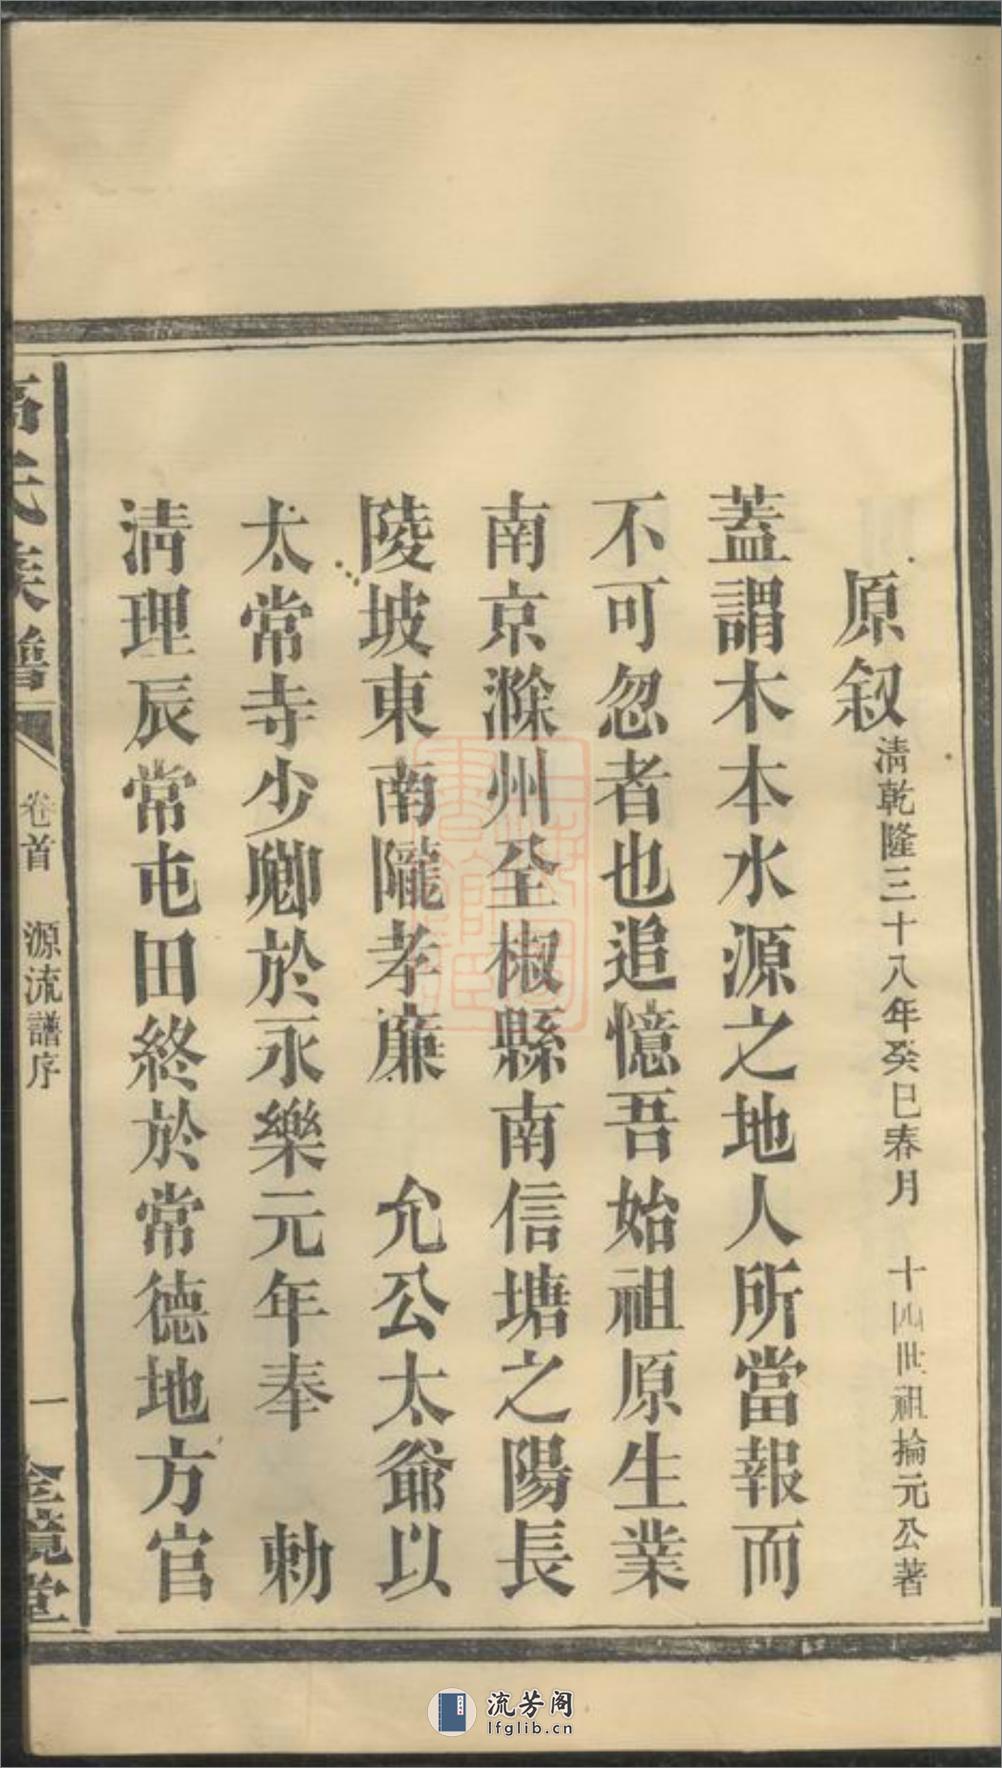 原叙 清乾隆三十八年癸巳春月 十四世祖掄元公著
蓋謂木本水源之地人所當報而
不可忽者也追憶吾始祖原生業
南京滁州全椒縣南信塘之陽長
陵坡東南隴孝廉 允公太爺以
太常寺少卿於永樂元年奉 勅
清理辰常屯田終於常德地方官
氏族譜
卷首 源流譜序
一
堂
流芳阁
lfglib.cn